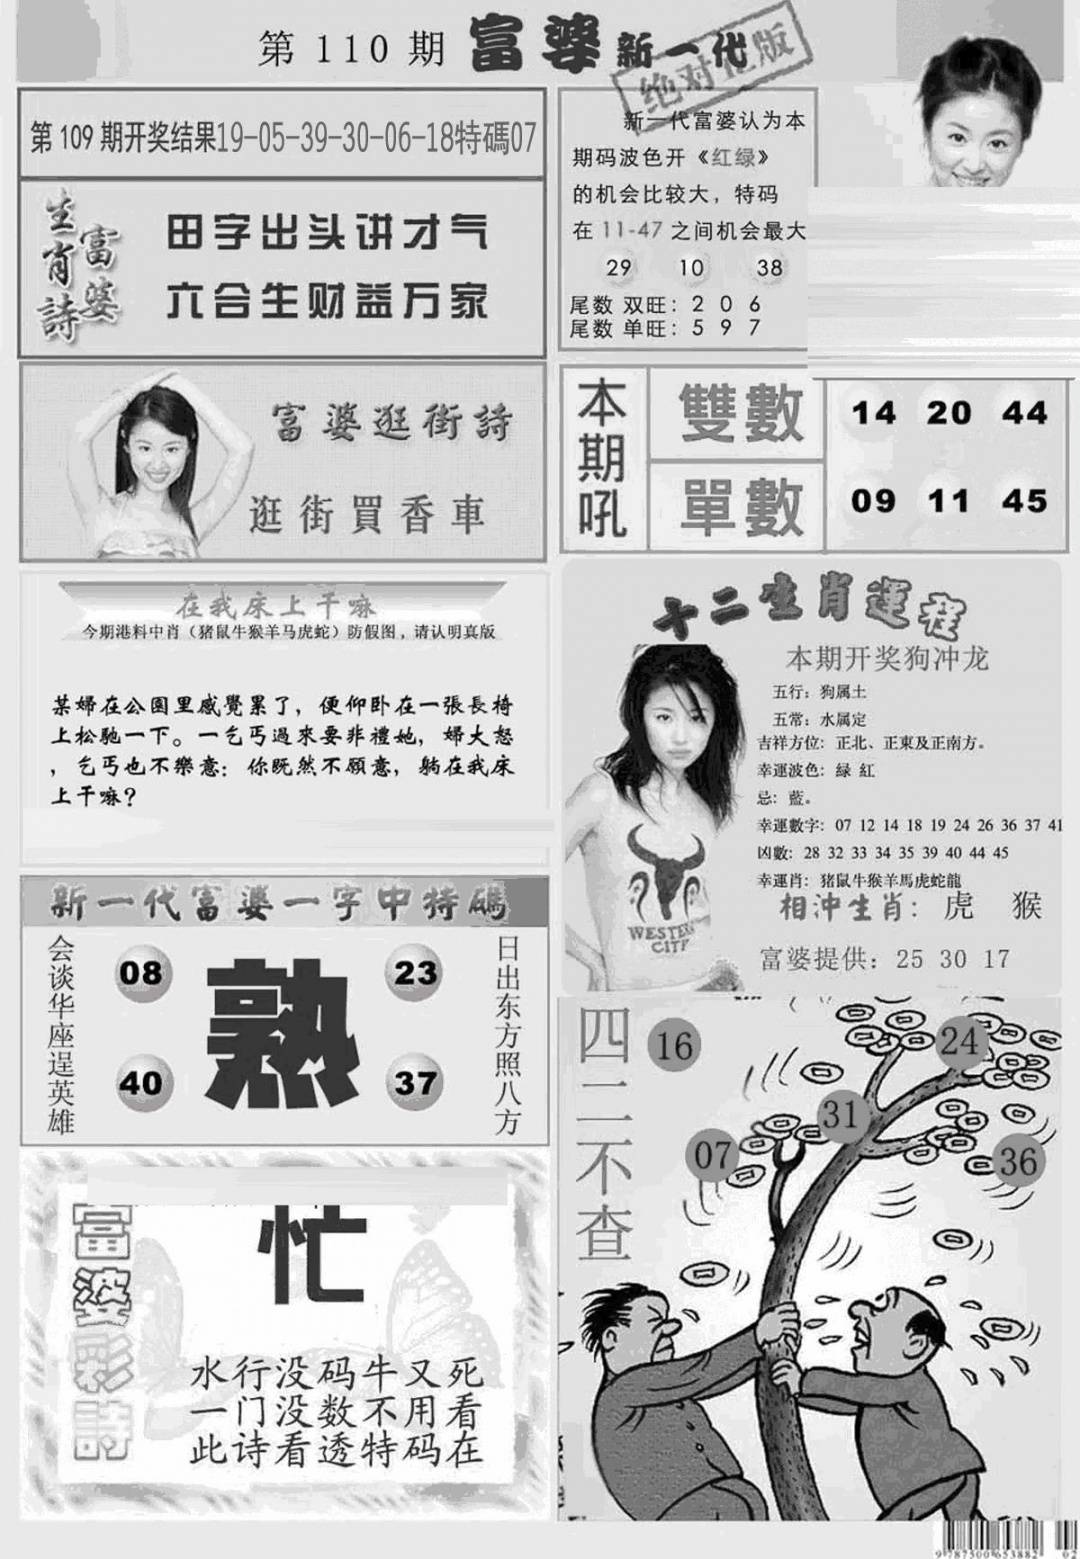 第 110 期 富婆 新一代
绝对正版
第 109 期开奖结果19-05-39-30-06-18特碼07
富婆
生肖詩
田字出头讲才气
六合生财益万家
新一代富婆认为本
期码波色开《红绿》
的机会比较大，特码
在 11-47 之间机会最大
29 10 38
尾数 双旺：2 0 6
尾数 单旺：5 9 7
富婆逛街詩
逛街買香車
本期吼
雙數
14 20 44
單數
09 11 45
在我床上干嘛
今期港料中肖（猪鼠牛猴羊马虎蛇）防假图，请认明真版
某婦在公園里感覺累了，便仰卧在一張長椅
上松馳一下。一乞丐過來要非禮她，婦大怒
，乞丐也不樂意：你既然不願意，躺在我床
上干嘛？
十二生肖運程
本期开奖狗冲龙
五行：狗属土
五常：水属定
吉祥方位：正北、正東及正南方。
幸運波色：緑 紅
忌：藍。
幸運數字：07 12 14 18 19 24 26 36 37 41
凶數：28 32 33 34 35 39 40 44 45
幸運肖：猪鼠牛猴羊馬虎蛇龍
相沖生肖：虎 猴
富婆提供：25 30 17
WESTERN
CITY
新一代富婆一字中特碼
会谈华座逞英雄
08 23
熟
40 37
日出东方照八方
四二不查
16
24
31
07
36
富婆彩詩
忙
水行没码牛又死
一门没数不用看
此诗看透特码在
9787500653882 02